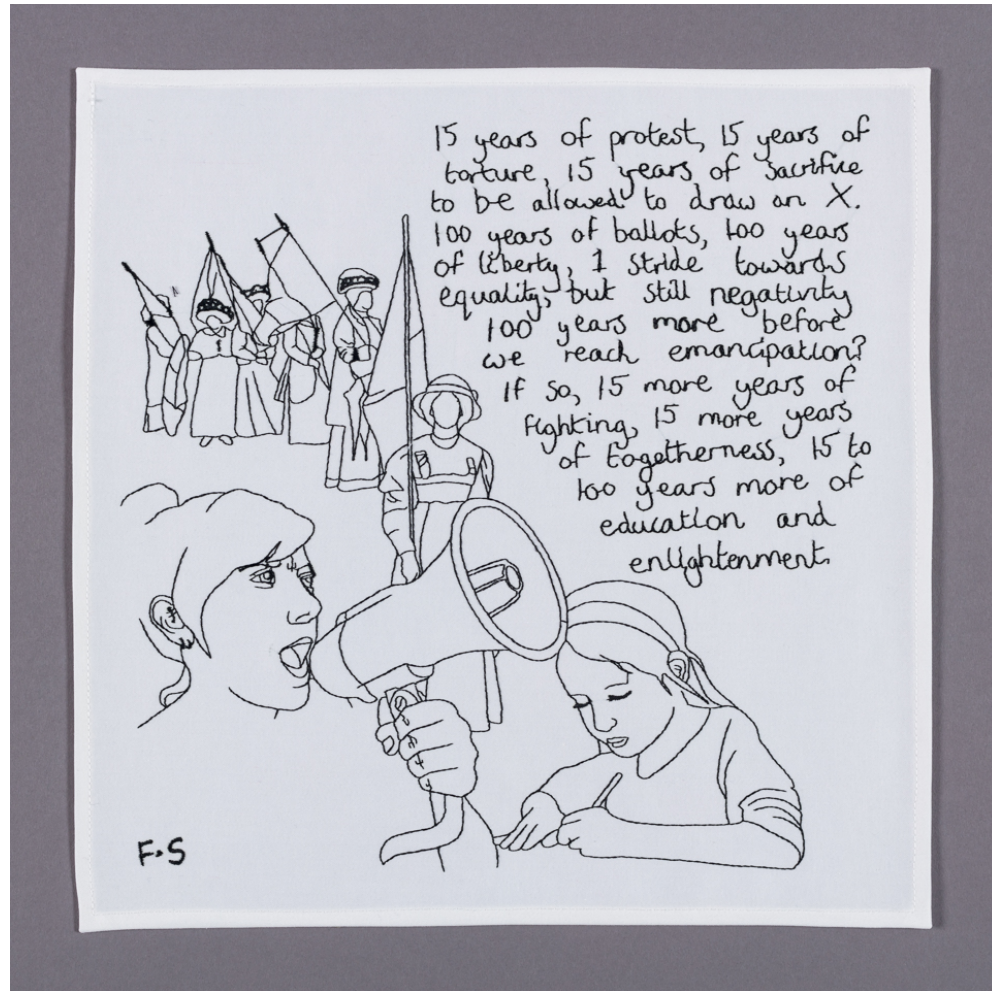 15 years of protest, 15 years of
torture, 15 years of sacrifice
to be allowed to draw an X.
100 years of ballots, 100 years
of liberty, 1 stride towards
equality, but still negativity
100 years more before
we reach emancipation?
If so, 15 more years of
fighting, 15 more years
of togetherness, 15 to
100 years more of
education and
enlightenment.
F.S